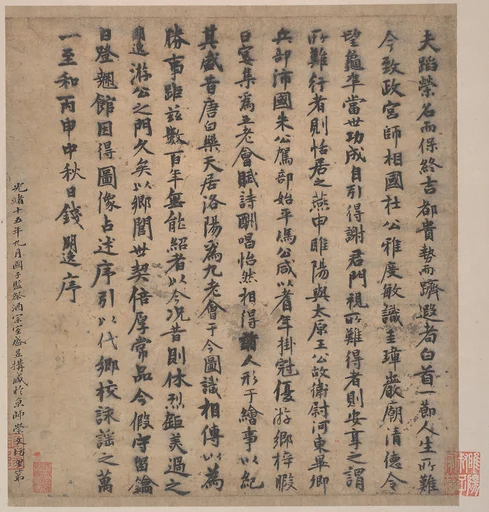 夫蹈榮名而保終吉都貴勢而躋遐耇白首一節人生所難
今致政宮師相國杜公雅度敏識圭璋巖廟清德令
望龜準當世功成自引得謝君門視所難得者則安享之謂
所難行者則恬居之燕申睢陽與太原王公故衛尉河東畢卿
兵部沛國朱公駕部始平馮公咸以耆年掛冠優游鄉梓暇
日宴集為五老會賦詩酬唱怡然相得 人形于繪事以紀
其盛昔唐白樂天居洛陽為九老會于今圖識相傳以為
勝事距茲數百年無能紹者以今況昔則休烈鉅美過之
明逸游公之門久矣以鄉閭世契倍厚常品今假守留鑰
日登翹館因得圖像占述序引以代鄉校詠謠之萬
一至和丙申中秋日錢明逸序
光緒十五年九月國子監祭酒宗室盛昱搆藏於京師崇文門 第